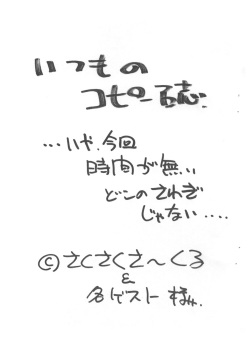 いつもの
コピー誌
…いや、今回
時間が無い
どこのさわぎ
じゃない….
©さくさくさ〜くる
&
各ゲスト様。